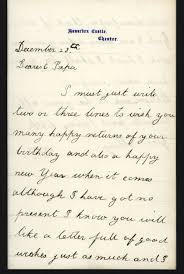 Hawarden Castle,
Chester.
December 28th
Dearest Papa
I must just write
two or three lines to wish you
many happy returns of your
birthday and also a happy
new Year when it comes
although I have got no
present I know you will
like a letter full of good
wishes just as much and I